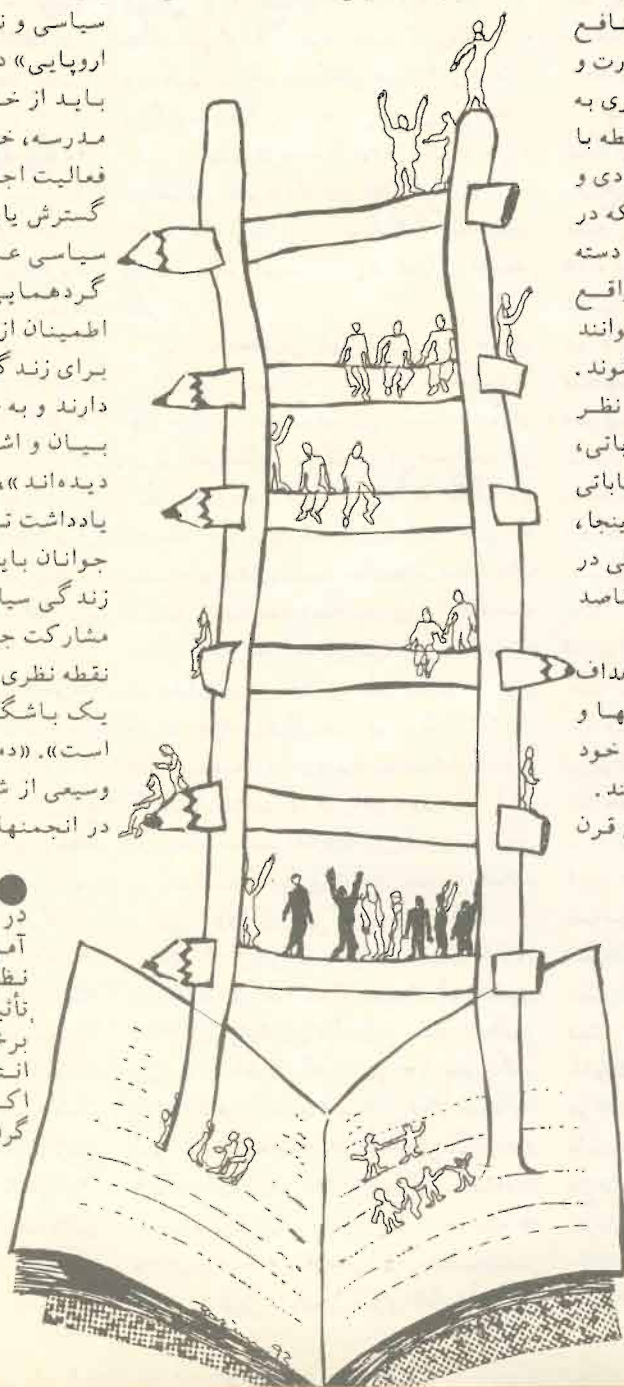 ـافع
رت و
ری به
طه با
دی و
که در
دسته
اقع
وانند
وند.
نظر
یاتی،
اباتی
ینجا،
لی در
اصد
داف
ها و
خود
ند.
قرن
سیاسی و ن
اروپایی» د
باید از خ
مدرسه، خ
فعالیت اج
گسترش یا
سیاسی عـ
گردهمایی
اطمینان از
برای زندگ
دارند و به
بیان و اش
دیده‌اند»،
یادداشت ت
جوانان بای
زندگی سیا
مشارکت ج
نقطه نظری
یک باشگ
است». «ده
وسیعی از ش
در انجمنها
در
آمـ
نظـ
تأثیـ
برخـ
انتـ
اکـ
گرا
92